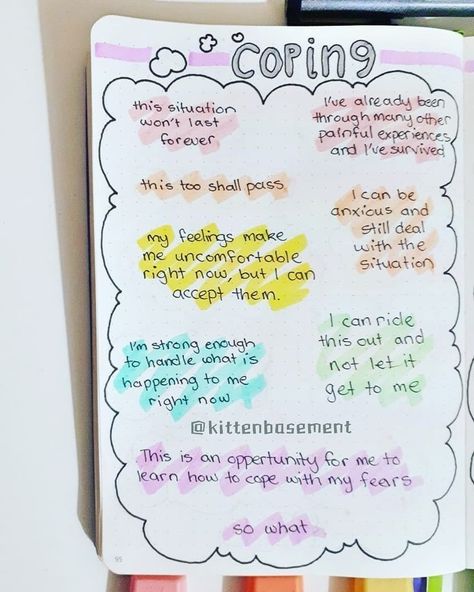 coping
this situation
won't last
forever
I've already been
through many other
painful experiences,
and I've survived
this too shall pass
I can be
anxious and
still deal
with the
situation
my feelings make
me uncomfortable
right now, but I can
accept them.
I can ride
this out and
not let it
get to me
I'm strong enough
to handle what is
happening to me
right now
@kittenbasement
This is an oppertunity for me to
learn how to cope with my fears
so what